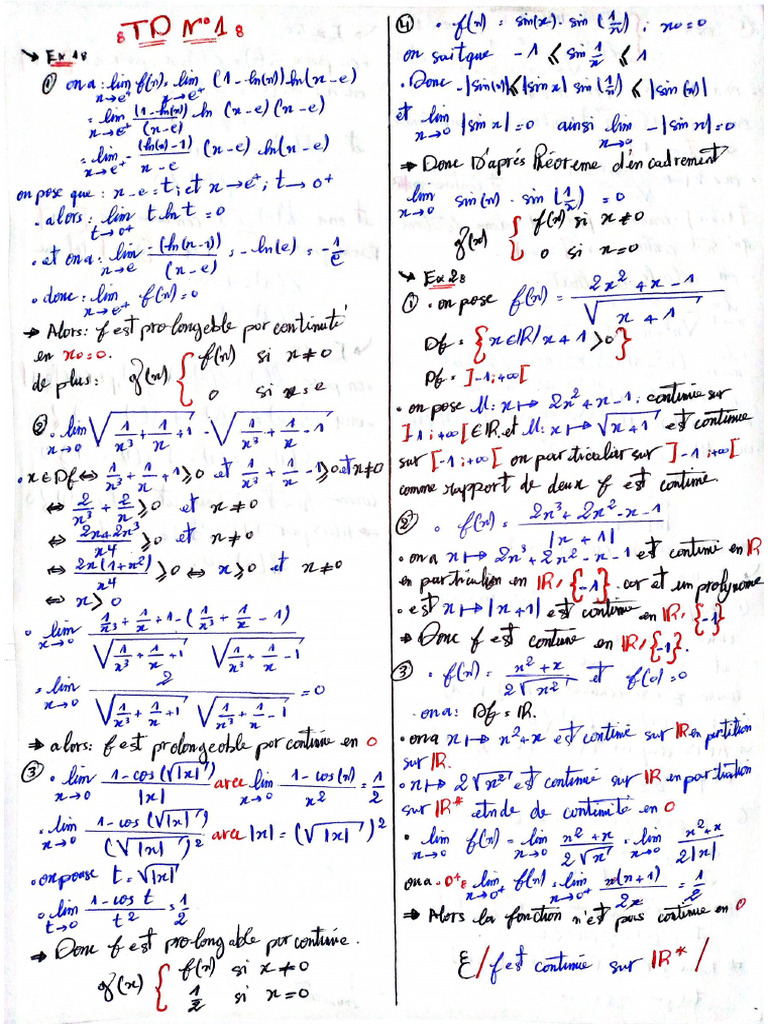 TD N°1
Ex 1
① on a : lim f(x) = lim (1-ln(x)) ln(x-e)
x→e⁺ x→e⁺
= lim (1-ln(x))/(x-e) ln (x-e)(x-e)
x→e⁺
= lim - (ln(x)-1)/(x-e) (x-e) ln(x-e)
x→e⁺
on pose que : x-e = t ; et x→e⁺ ; t→0⁺
• alors : lim t ln t = 0
t→0⁺
• et on a : lim -(ln(x-1))/(x-e) = - ln(e) = -1/e
x→e
• donc : lim f(x) = 0
x→e⁺
→ Alors : f est prolongeable par continuité
en x0 = 0.
de plus : g(x) { f(x) si x≠0
0 si x=e
② • lim √(1/x³ + 1/x + 1) - √(1/x³ + 1/x - 1)
x→0
• x∈Df ⇔ 1/x³ + 1/x + 1 ⩾ 0 et 1/x³ + 1/x - 1 ⩾ 0 et x≠0
⇔ 2/x³ + 2/x ⩾ 0 et x≠0
⇔ (2x+2x³)/x⁴ ⩾ 0 et x≠0
⇔ 2x(1+x²)/x⁴ ⩾ 0 ⇔ x ⩾ 0 et x≠0
⇔ x > 0
• lim (1/x³ + 1/x + 1 - (1/x³ + 1/x - 1))/(√(1/x³ + 1/x + 1) √(1/x³ + 1/x - 1))
x→0
= lim 2/(√(1/x³ + 1/x + 1) √(1/x³ + 1/x - 1)) = 0
x→0
→ alors : f est prolongeable par continuie en 0
③ • lim (1-cos(√|x|))/|x| avec lim (1-cos(x))/x² = 1/2
x→0 x→0
= lim (1-cos(√|x|))/(√|x|)² avec |x| = (√|x|)²
x→0
• on poase t = √|x|
• lim (1-cos t)/t² = 1/2
t→0
→ Donc f est prolongable par continue.
g(x) { f(x) si x≠0
1/2 si x=0
④ • f(x) = sin(x) · sin(1/x) ; x0=0
on sait que -1 ⩽ sin 1/x ⩽ 1
• Donc -|sin(x)| ⩽ |sin x| sin(1/x) ⩽ |sin(x)|
et lim |sin x| = 0 ainsi lim -|sin x| = 0
x→0 x→0
→ Donc D'aprés théoreme d'encadrement
lim sin(x) · sin(1/x) = 0
x→0
g(x) { f(x) si x≠0
0 si x=0
Ex 2
① • on pose f(x) = (2x²+x-1)/√(x+1)
Df = {x∈IR/x+1 > 0}
Df = ]-1;+∞[
• on pose U: x↦2x²+x-1 : continue sur
]1;+∞[ ∈IR et U: x↦√(x+1) est continue
sur [-1;+∞[ on particulier sur ]-1;+∞[
comme rapport de deux f est continue.
② • f(x) = (2x³+2x²-x-1)/|x+1|
• on a x↦2x³+2x²-x-1 est continue en IR
en particulien en IR/{-1} car et un prolynome
• est x↦|x+1| est continue en IR/{-1}
→ Donc f est continue en IR/{-1}.
③ • f(x) = (x²+x)/(2√x²) et f(0)=0
on a : Df = IR.
• on a x↦x²+x est continue sur IR en partition
sur IR.
• x↦2√x² est continue sur IR en partiation
sur IR* etude de continuité en 0
• lim f(x) = lim (x²+x)/(2√x²) = lim (x²+x)/(2|x|)
x→0 x→0 x→0
on a • 0⁺ : lim f(x) = lim x(x+1)/2x = 1/2
x→0⁺ x→0⁺
→ Alors la fonction n'est pas continue en 0
ξ/ f est continue sur IR* /